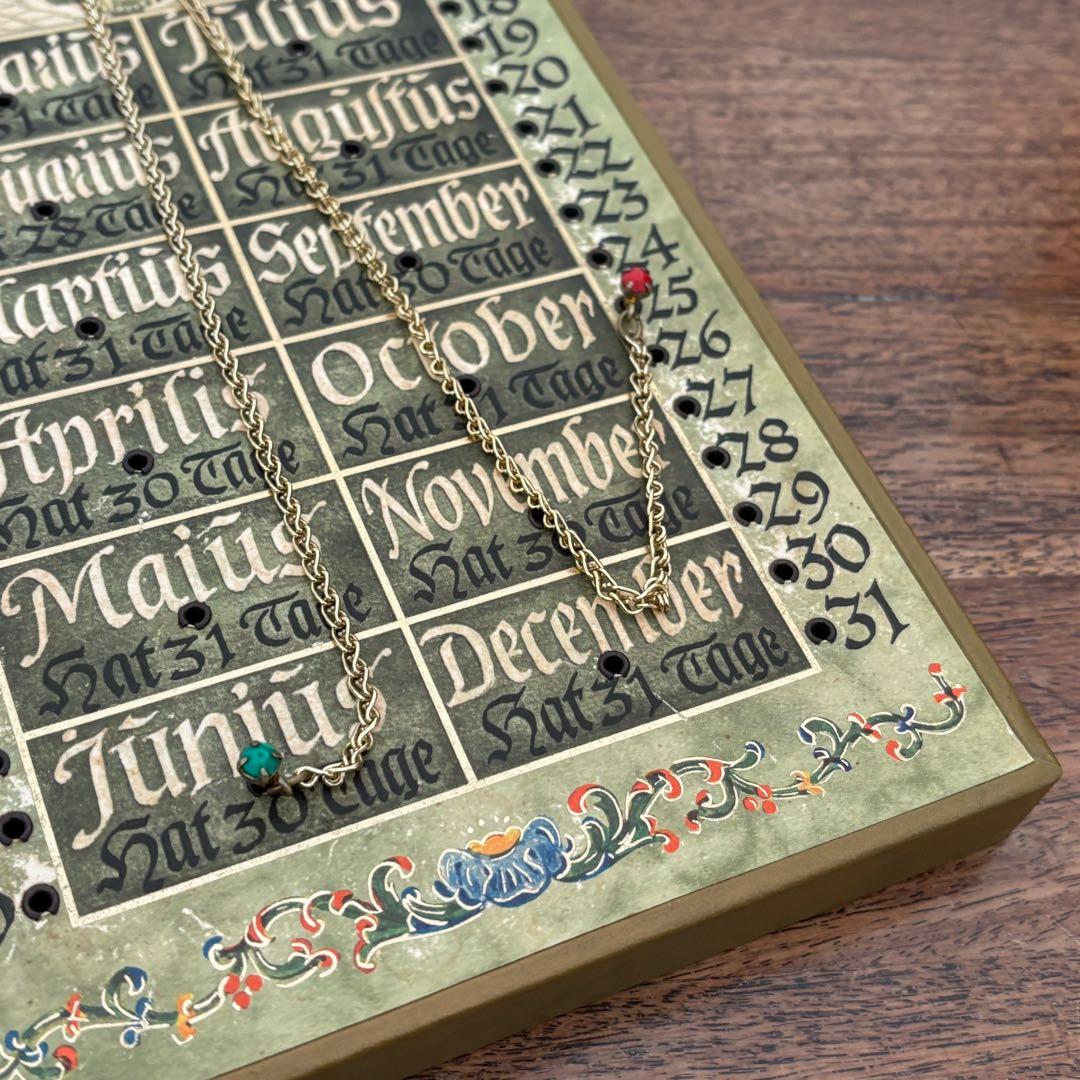 arius
31 Tage
uarius
t 28 Tage
artius
at 31 Tage
Aprilis
Hat 30 Tage
Maius
Hat 31 Tage
Junius
Hat 30 Tage
Julius
Hat 31 Tage
Auguſtus
Hat 31 Tage
September
Hat 30 Tage
October
Hat 31 Tage
November
Hat 30 Tage
December
Hat 31 Tage
18
19
20
21
22
23
24
25
26
27
28
29
30
31